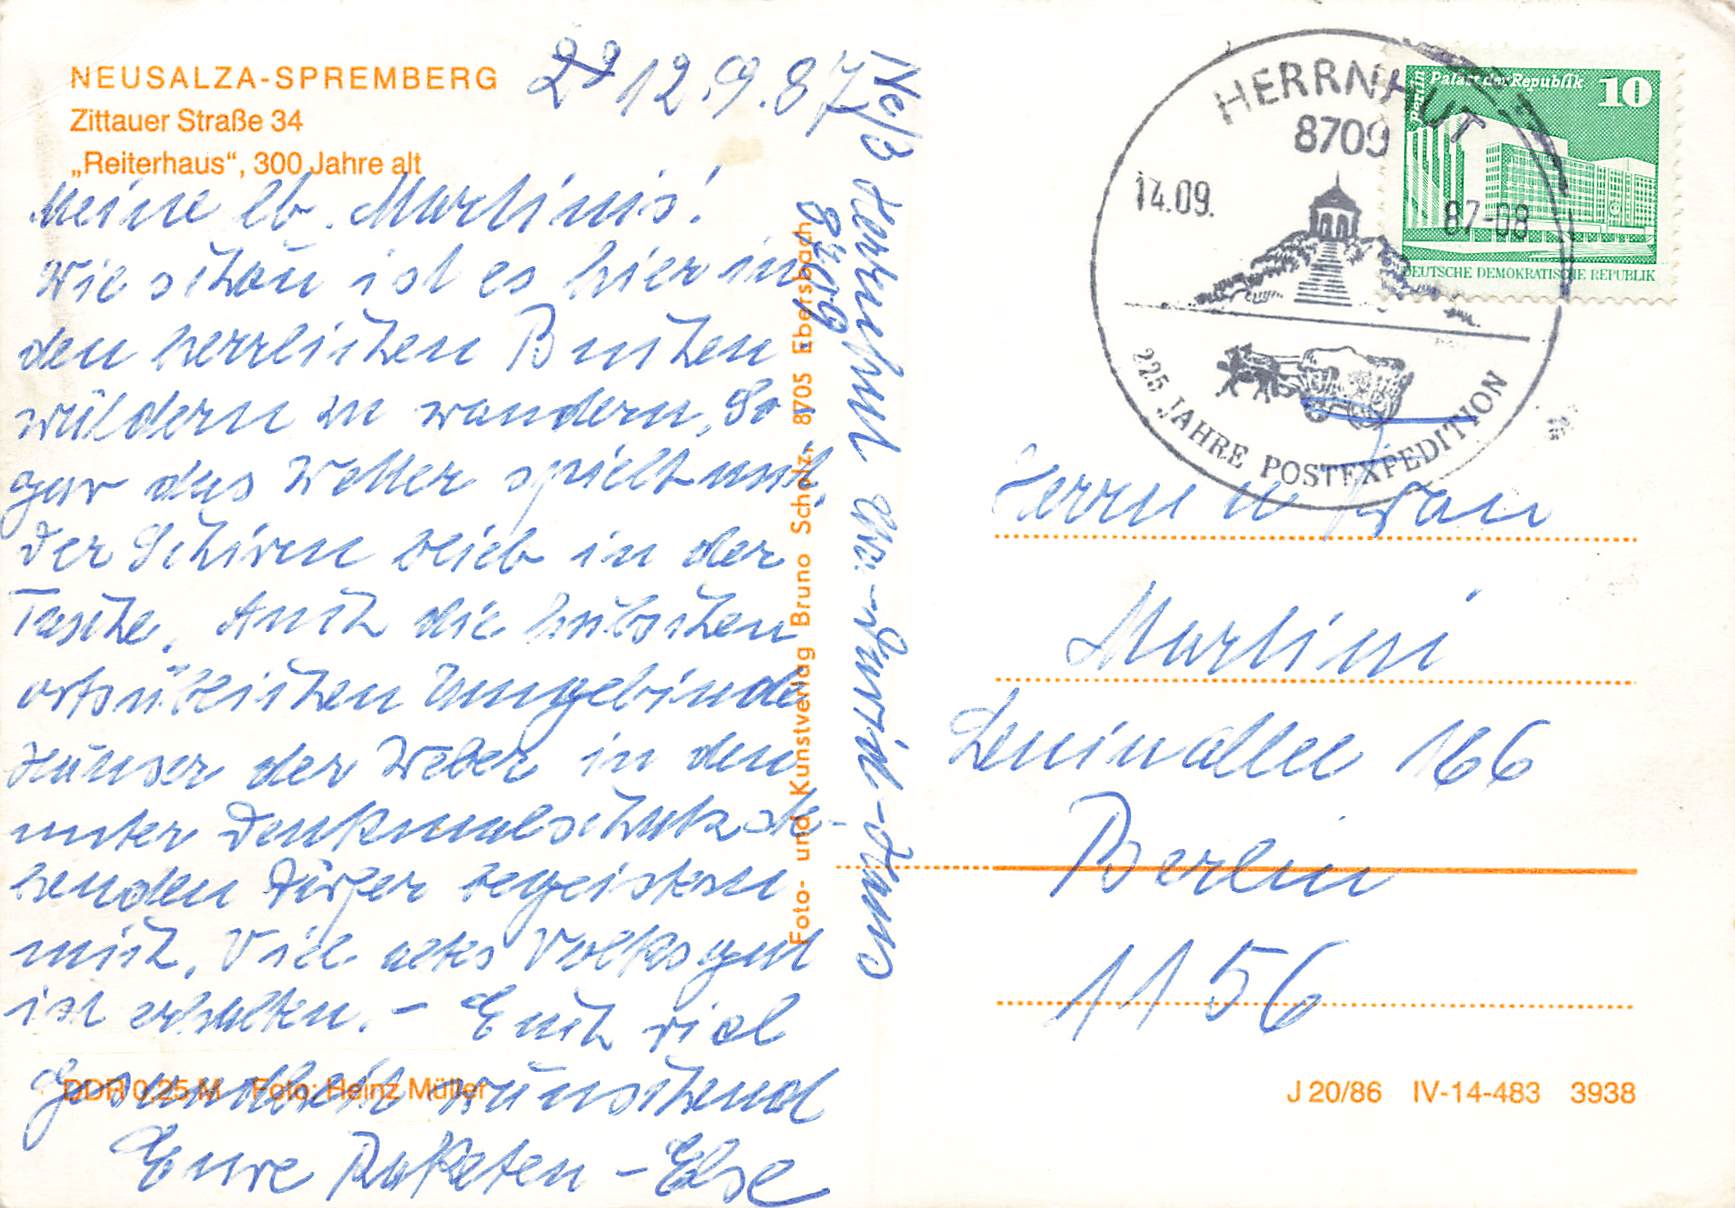 NEUSALZA-SPREMBERG
Zittauer Straße 34
„Reiterhaus“, 300 Jahre alt
12.9.87
Meine lb. Martinis!
Wie schön ist es hier in
den herrlichen Buchen
wäldern zu wandern. So
gar das Wetter spielt mit.
Der Schirm blieb in der
Tasche. Auch die hübschen
ortsüblichen Umgebinde
Häuser der Weber in den
unter Denkmalschutz ste-
henden Dörfer begeistern
mich. Viel altes Volksgut
ist erhalten. - Euch viel
Gesundheit wünschend
Eure Raketen-Else
DDR 0,25 M Foto: Heinz Müller
Foto- und Kunstverlag Bruno Scholz, 8705 Ebersbach
Herrnhut
8709
HERRNHUT
8709
14.09.
87-08
225 JAHRE POSTEXPEDITION
Berlin
Palast der Republik
10
DEUTSCHE DEMOKRATISCHE REPUBLIK
Herrn u Frau
Martini
Leninallee 166
Berlin
1156
J 20/86 IV-14-483 3938